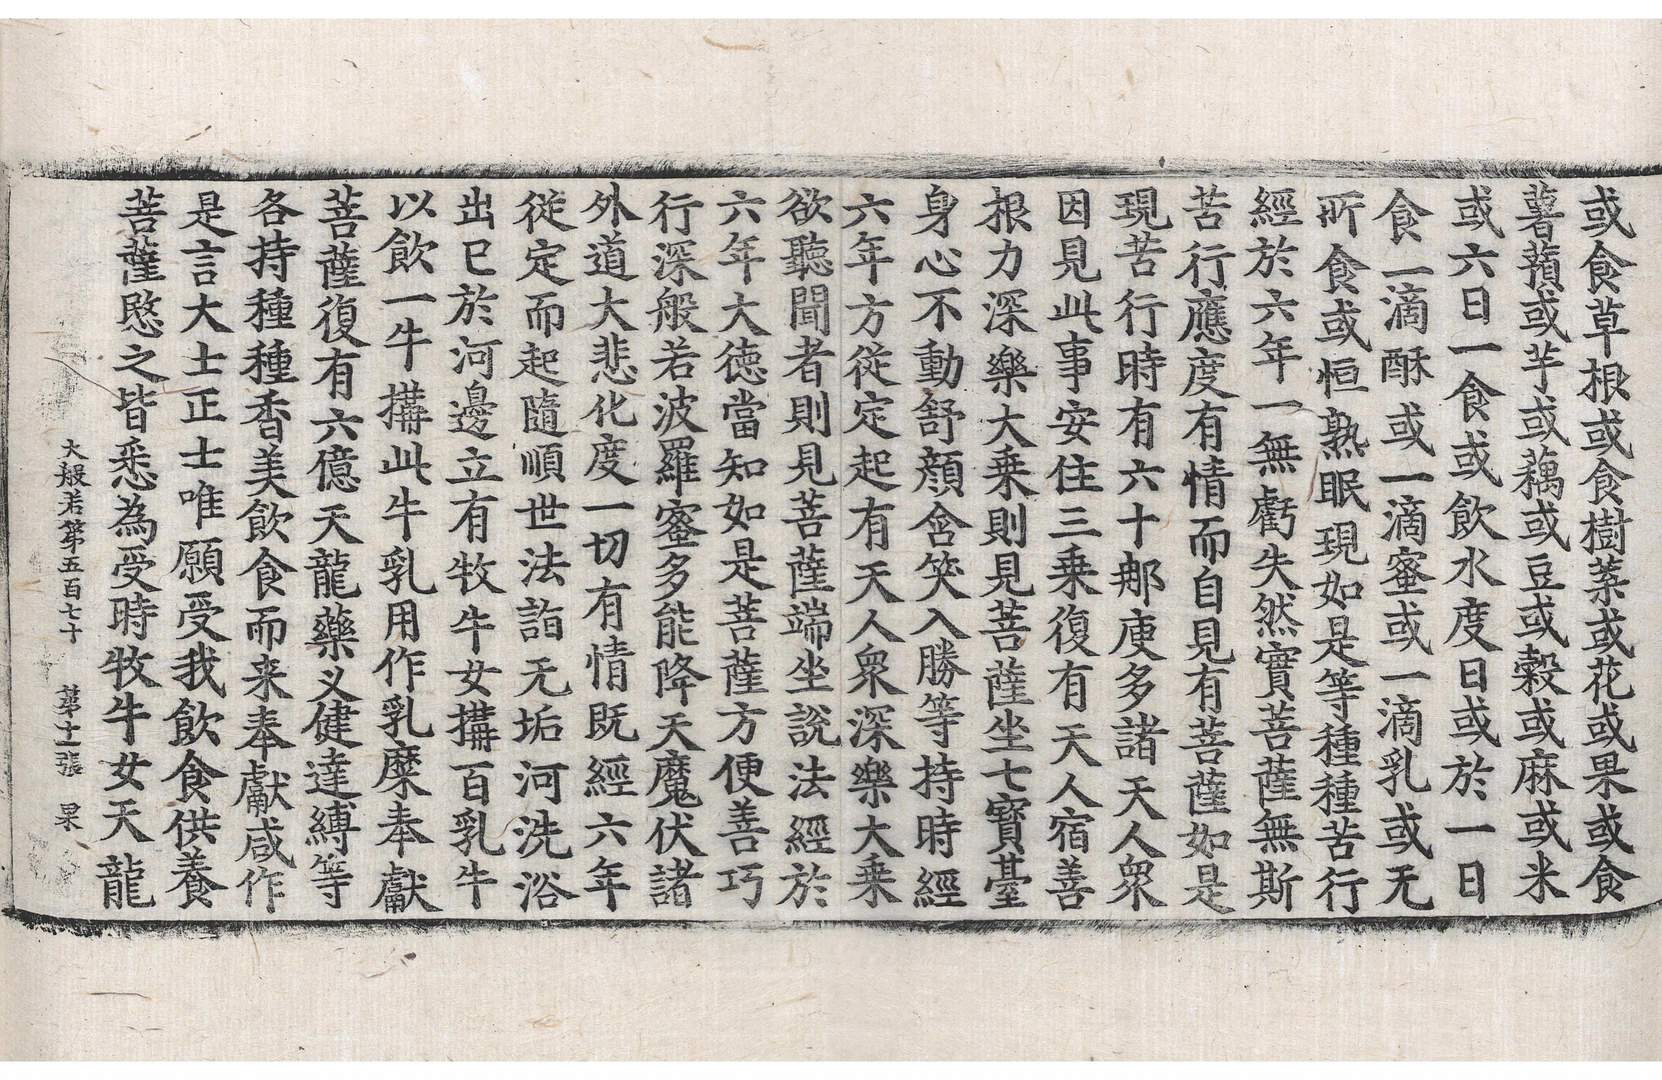 或食草根或食樹葉或花或果或食
薯蕷或芋或藕或豆或穀或麻或米
或六日一食或飲水度日或於一日
食一滴酥或一滴蜜或一滴乳或无
所食或恒熟眠現如是等種種苦行
經於六年一無虧失然實菩薩無斯
苦行應度有情而自見有菩薩如是
現苦行時有六十那庾多諸天人眾
因見此事安住三乗復有天人宿善
根力深樂大乗則見菩薩坐七寶臺
身心不動舒顔含笑入勝等持時經
六年方從定起有天人眾深樂大乗
欲聽聞者則見菩薩端坐說法經於
六年大徳當知如是菩薩方便善巧
行深般若波羅蜜多能降天魔伏諸
外道大悲化度一切有情既經六年
從定而起隨順世法詣无垢河洗浴
出已於河邊立有牧牛女搆百乳牛
以飲一牛搆此牛乳用作乳糜奉獻
菩薩復有六億天龍藥义健達縛等
各持種種香美飲食而来奉獻咸作
是言大士正士唯願受我飲食供養
菩薩愍之皆悉為受時牧牛女天龍
大般若第五百七十 苐十一張 杲